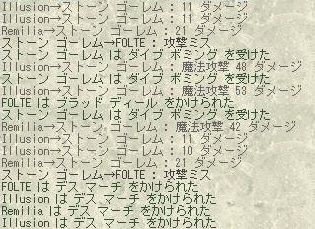 Illusion→ストーン ゴーレム : 11 ダメージ
Illusion→ストーン ゴーレム : 11 ダメージ
Remilia→ストーン ゴーレム : 21 ダメージ
ストーン ゴーレム→FOLTE : 攻撃ミス
ストーン ゴーレム は ダイブ ボミング を受けた
ストーン ゴーレム は ダイブ ボミング を受けた
Illusion→ストーン ゴーレム : 魔法攻撃 48 ダメージ
Illusion→ストーン ゴーレム : 魔法攻撃 53 ダメージ
FOLTE は ブラッド ディール をかけられた
ストーン ゴーレム は ダイブ ボミング を受けた
Remilia→ストーン ゴーレム : 魔法攻撃 42 ダメージ
Illusion→ストーン ゴーレム : 11 ダメージ
Illusion→ストーン ゴーレム : 10 ダメージ
Remilia→ストーン ゴーレム : 21 ダメージ
ストーン ゴーレム→FOLTE : 攻撃ミス
FOLTE は デス マーチ をかけられた
Illusion は デス マーチ をかけられた
Remilia は デス マーチ をかけられた
Illusion は デス マーチ をかけられた